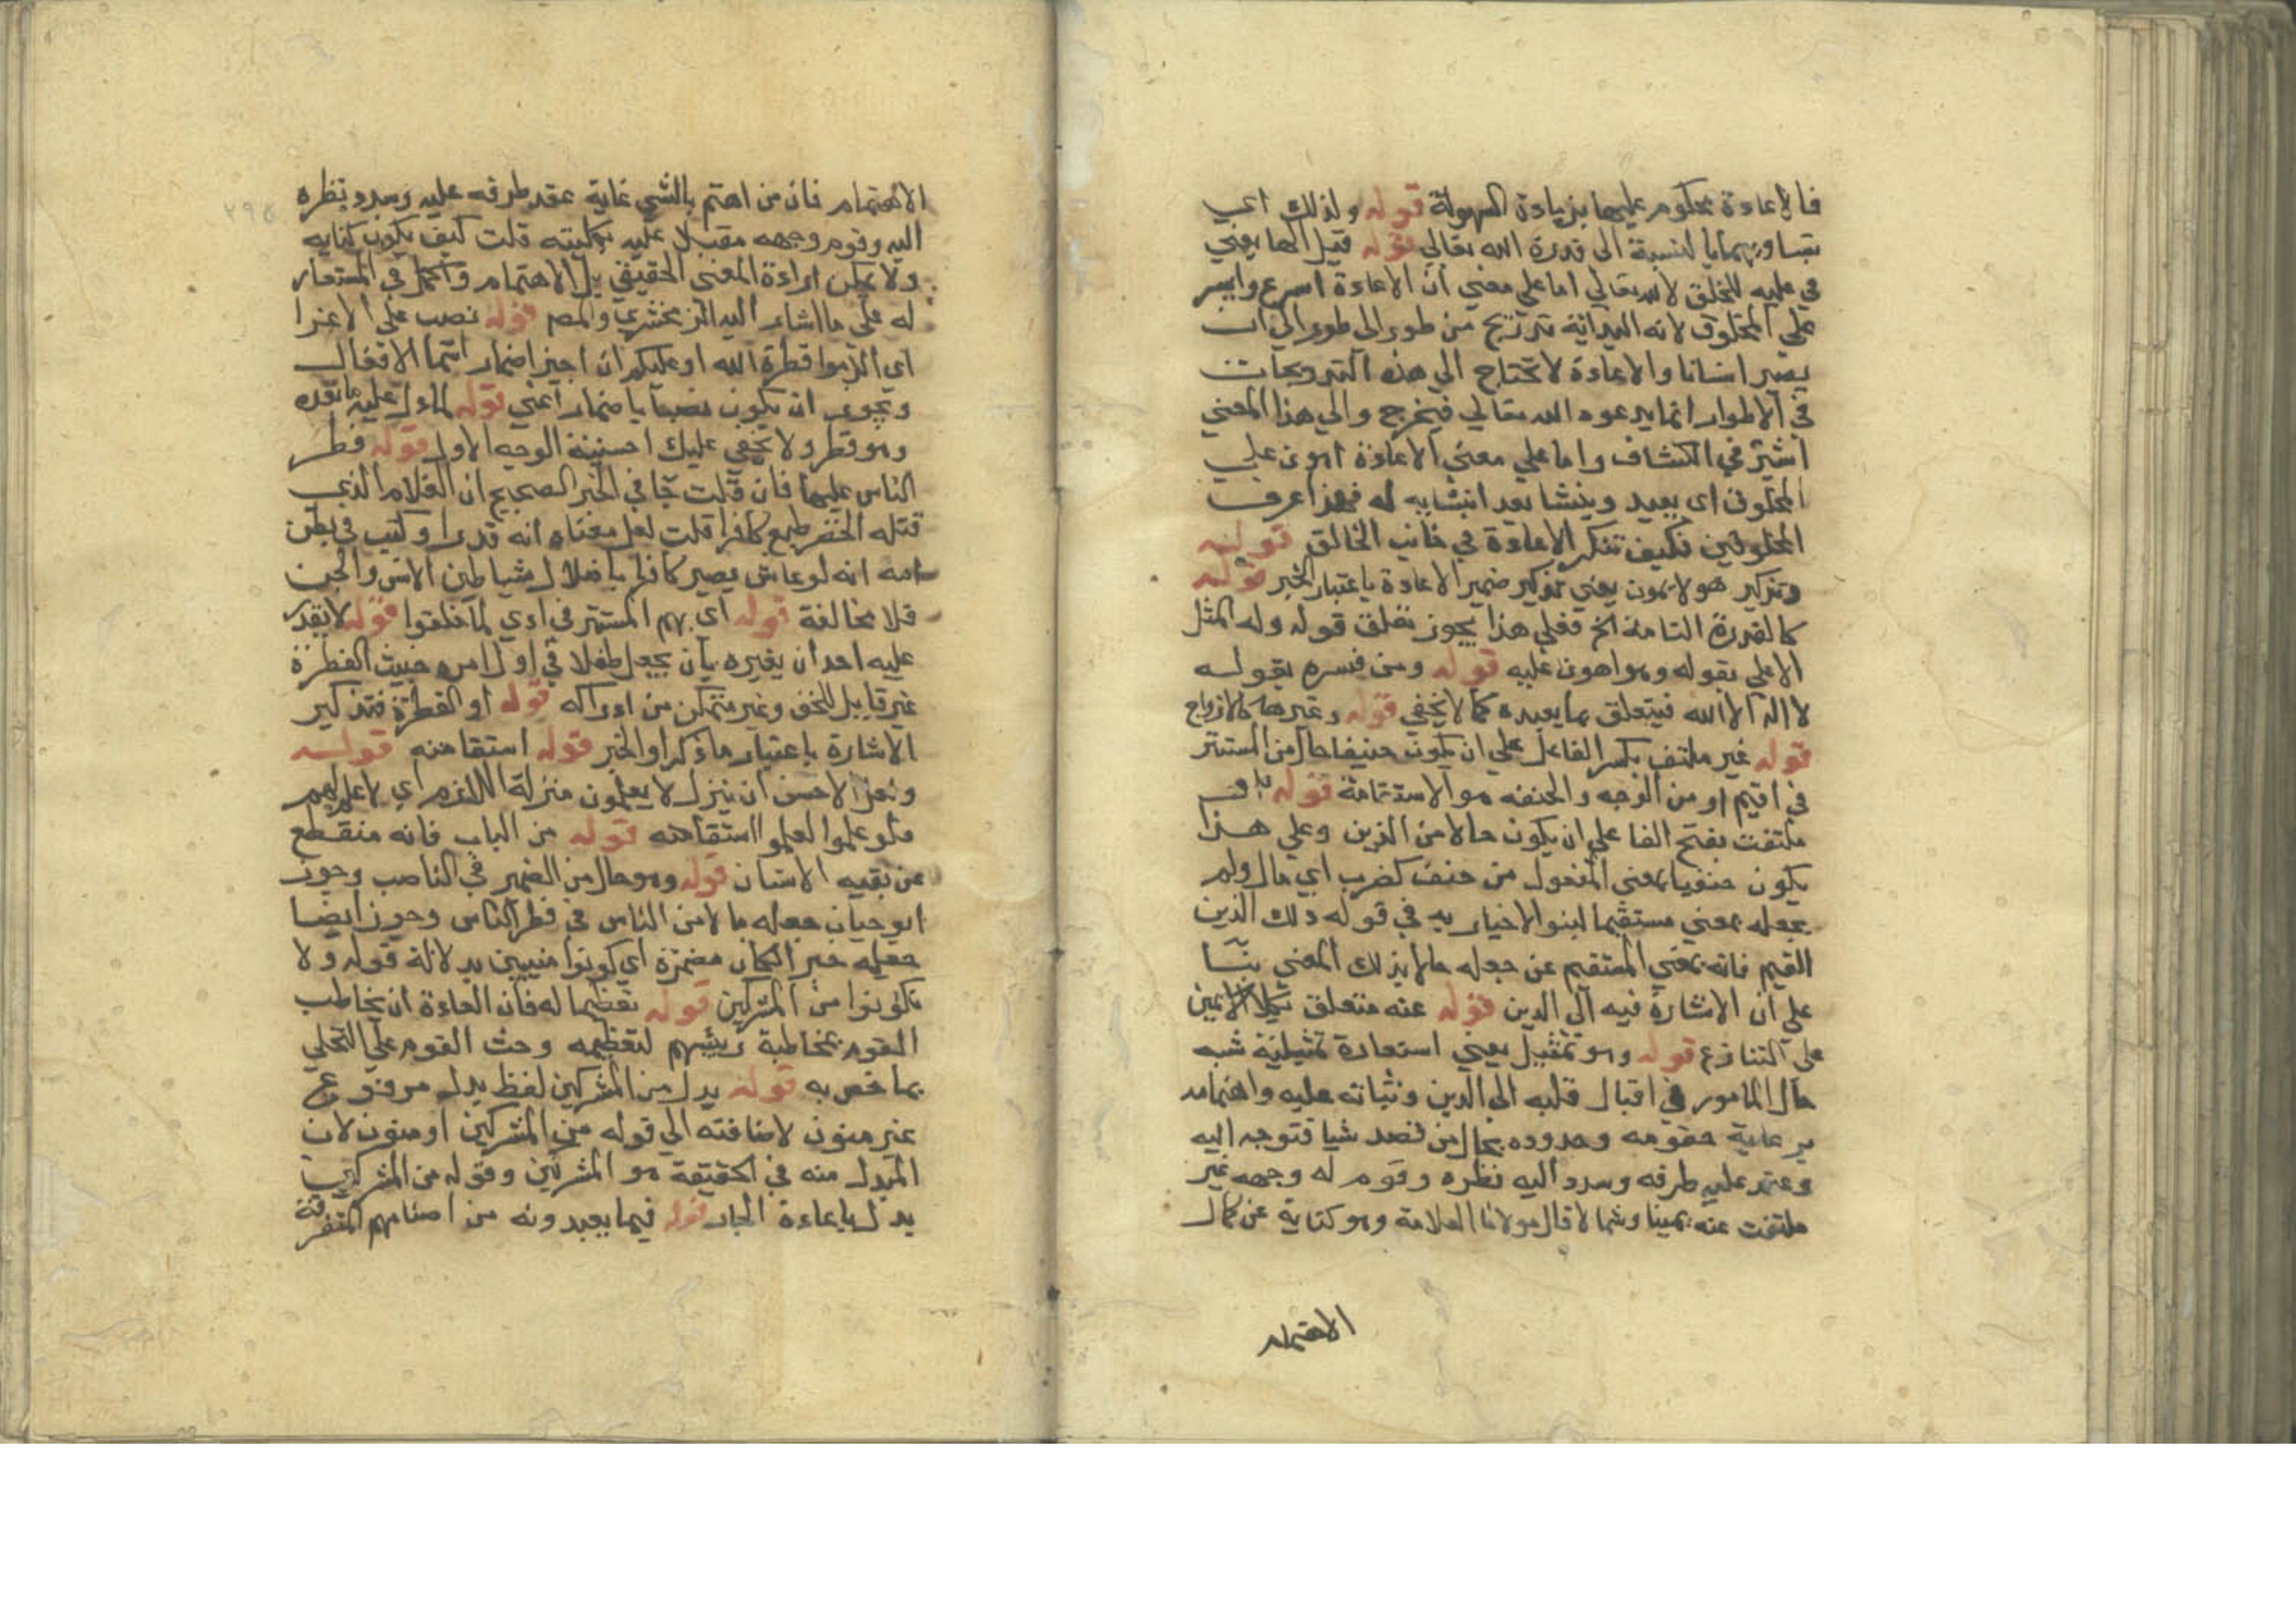 فالاعادة محكوم عليها بزيادة السهولة قوله ولذلك اي
بتساويهما بالنسبة الى قدرة الله تعالي قوله قيل الها يعني
في عليه للخلق لا لله تعالي اما علي معني ان الاعادة اسرع وايسر
علي المخلوق لانه البدائة تدريج من طور الي طور الي ان
يصير انسانا والاعادة لا تحتاج الي هذه التدريجات
في الاطوار انما يدعوه الله تعالي فيخرج والي هذا المعني
اشير في الكشاف واما علي معني الاعادة اهون علي
المخلوق اي يعيد وينشا بعد انشايه له فهذا عرف
المخلوقين فكيف تنكر الاعادة في جانب الخالق قوله
وتذكير هو لاهون يعني تذكير ضمير الاعادة باعتبار الخبر قوله
كالقدرة التامة الخ فعلي هذا يجوز تعلق قوله وله المثل
الاعلي بقوله وهو اهون عليه قوله ومن فسره بقوله
لا اله الا الله فيتعلق بما بعده كما لا يخفي قوله وغيرها كالازواج
قوله غير ملتفت بكسر الفا علي ان يكون حنيفا حال من المستتر
في اقيم او من الوجه والحنفه هو الاستقامة قوله
ملتفت بفتح الفا علي ان يكون حالا من الدين وعلي هذا
يكون حنفيا بمعني المفعول من حنف كضرب اي مال ولم
يجعله بمعني مستقيما لبنو الاخبار به في قوله ذلك الدين
القيم فانه بمعني المستقيم عن جعله حالا بذلك المعني بنا
علي ان الاشارة فيه الى الدين قوله عنه متعلق بكلا الامين
علي التنازع قوله وهو تمثيل يعني استعارة تمثيلية شبه
حال المامور في اقبال قلبه الى الدين وثباته عليه واهتمامه
برعاية حقوقه وحدوده بحال من قصد شيا فتوجه اليه
وعقد عليه طرفه وسدد اليه نظره وقوم له وجهه غير
ملتفت عنه يمينا وشمالا قال مولانا العلامة وهو كناية عن كمال
الاهتمام
الاهتمام فان من اهتم بالشي غاية عقد طرفه عليه وسدد نظره
اليه وقوم وجهه مقبلا عليه بكليته قلت كيف يكون كنايه
ولا يمكن ارادة المعني الحقيقي بل الاهتمام والحمل في المستعار
له علي ما اشار اليه الزمخشري والمص قوله نصب علي الاغرا
اي الزموا فطرة الله او عليكم ان اجيز اضمار اسما الافعال
ويجوز ان يكون نصبها باضمار اعني قوله لما دل عليه ما بعده
وهو فطر ولا يخفي عليك احسنية الوجه الاول قوله فطر
الناس عليها فان قلت جا في الخبر الصحيح ان الغلام الذي
قتله الخضر طبع كافرا قلت لعل معناه انه قدر او كتب في بطن
امه انه لو عاش يصير كافرا باضلال شياطين الانس والجن
فلا مخالفة قوله اي بهم المستتر في ادي لما خلقوا قوله لا يقدر
عليه احد ان يغيره بان يجعل طفلا في اول امره خبيث الفطرة
غير قابل للحق وغير متمكن من ادراكه قوله او الفطرة فتذكير
الاشارة باعتبار ما ذكر او الخبر قوله استقامته قوله
ولعل الاحسن ان ينزل لا يعلمون منزلة اللازم اي لا علم لهم
فلو علموا لعلموا استقامته قوله من الباب فانه منقطع
عن بقيه الاسنان قوله وهو حال من الضمير في الناصب وجوز
ابو حيان جعله حالا من الناس في فطر الناس وجوز ايضا
جعله خبر الكان مضمرة اي كونوا منيبين بدلالة قوله ولا
تكونوا من المشركين قوله تعظيما له فان العادة ان يخاطب
القوم بمخاطبة رئيسهم لتعظيمه وحث القوم علي التحلي
بما خص به قوله بدل من المشركين لفظ بدل مرفوع
غير منون لاضافته الي قوله من المشركين او منون لان
المبدل منه في الحقيقة هو المشركين وقوله من المشركين
بدل باعادة الجار قوله فيما يعبدونه من اصنامهم المتفرقة